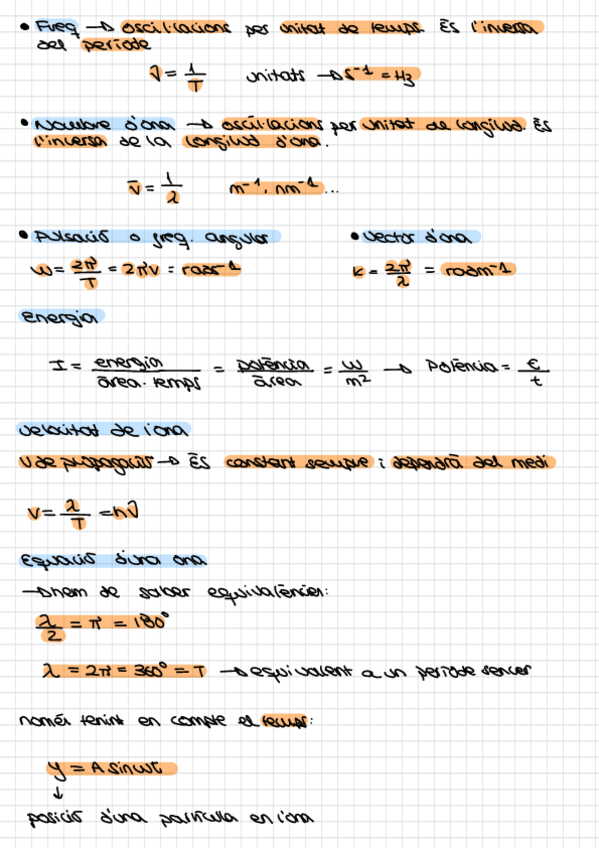 • Freq → oscil·lacions per unitat de temps. És l'inversa
del període
ν = 1/T unitats → s⁻¹ = Hz
• Nombre d'ona → oscil·lacions per unitat de longitud. És
l'inversa de la longitud d'ona.
ν̄ = 1/λ m⁻¹, nm⁻¹...
• Pulsació o freq. angular • Vector d'ona
ω = 2π/T = 2πν = rads⁻¹ k = 2π/λ = radm⁻¹
Energia
I = energia/àrea·temps = potència/àrea = W/m² → Potència = E/t
Velocitat de l'ona
V de propagació → És constant sempre i dependrà del medi
v = λ/T = λν
Equació d'una ona
→ hem de saber equivalències:
λ/2 = π = 180°
λ = 2π = 360° = T → equivalent a un període sencer
només tenint en compte el temps:
y = A sinωt
↓
posició d'una partícula en l'ona